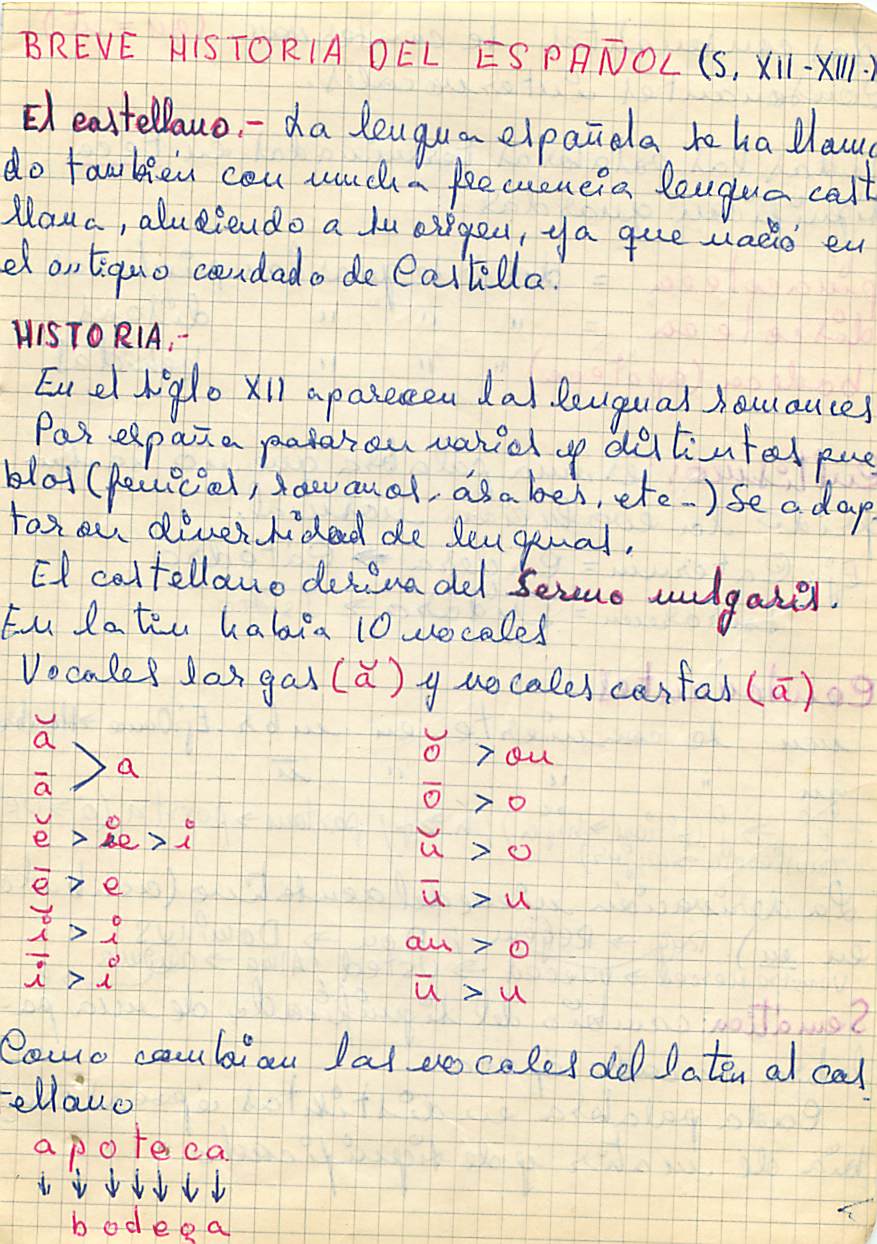 BREVE HISTORIA DEL ESPAÑOL (S. XII-XIII.)
El castellano.- La lengua española se ha llama
do también con mucha frecuencia lengua cast
llana, aludiendo a su origen, ya que nació en
el antiguo condado de Castilla.
HISTORIA.-
En el siglo XII aparecen las lenguas romances
Por españa pasaron varios y distintos pue
blos (fenicios, romanos, árabes, etc-) Se adap-
taron diversidad de lenguas.
El castellano deriva del Sermo vulgaris.
En latin habia 10 vocales
Vocales largas (ă) y vocales cortas (ā)
ă
ā > a
ĕ > ie > i
ē > e
ĭ > i
ī > i
ŏ > ou
ō > o
ŭ > o
ū > u
au > o
ū > u
Como cambian las vocales del latin al cas
-ellano
apoteca
↓ ↓ ↓ ↓ ↓ ↓ ↓
bodega